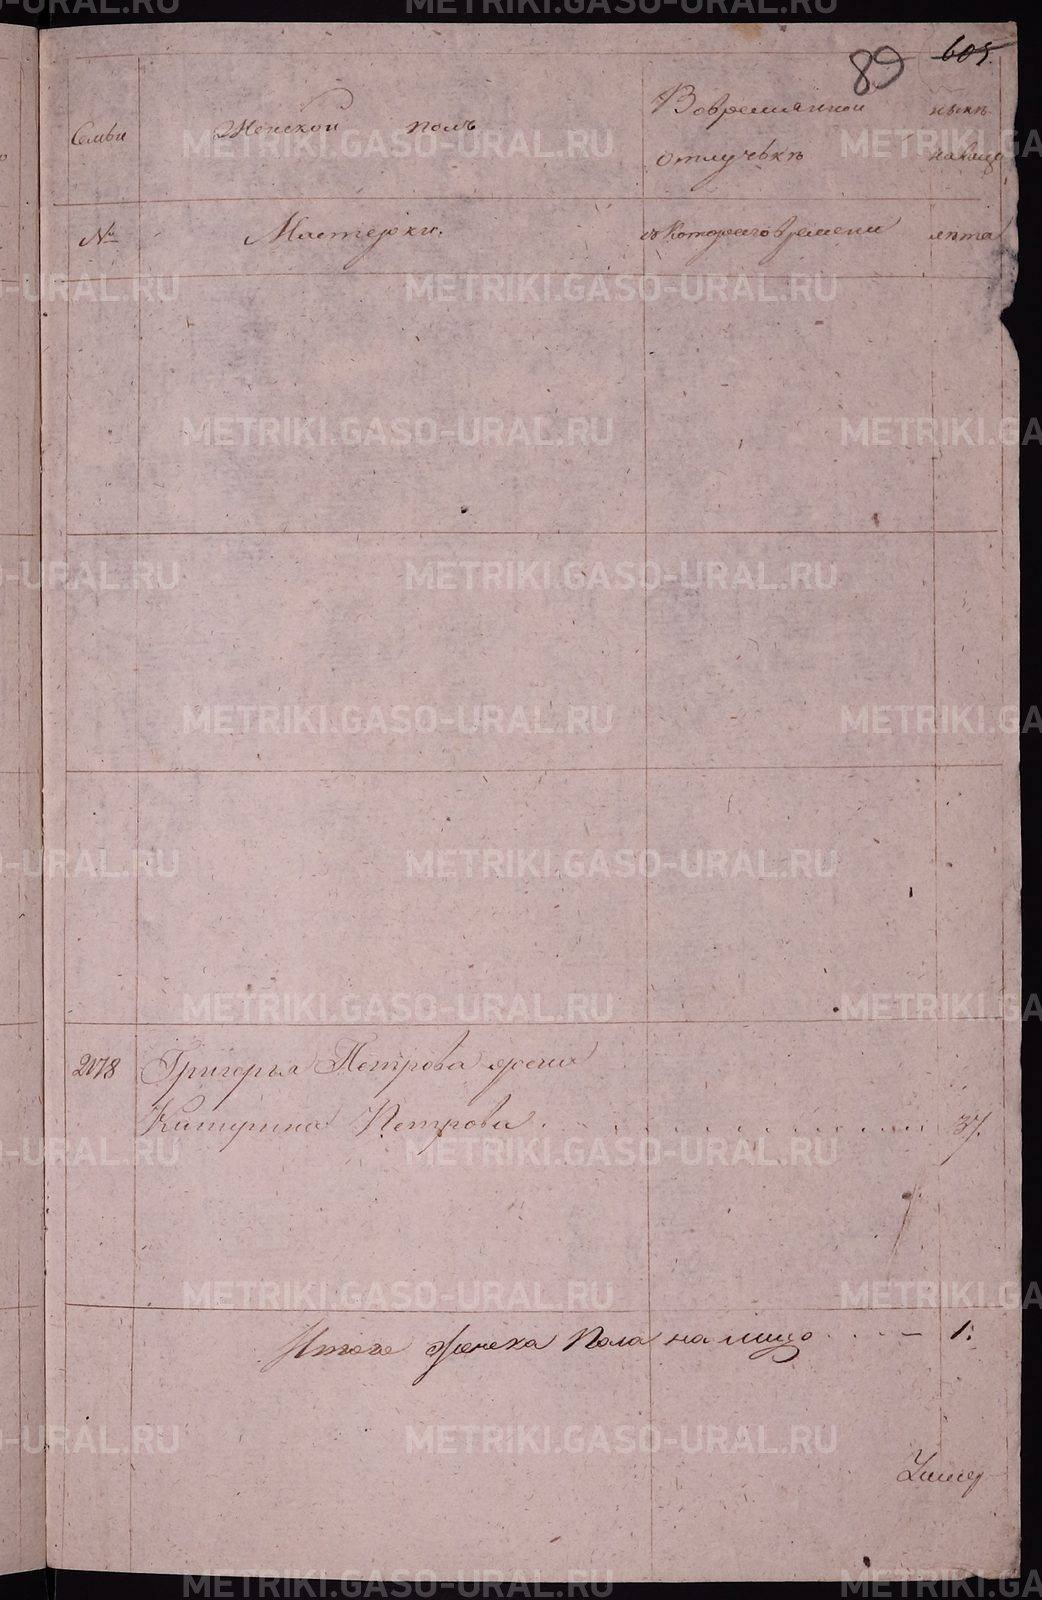 89 605
Семьи Женской полъ Вовременной ныне
отлучькѣ налицо
№ Мастерки. съ Котораго времени лѣта
2078 Григорья Петрова жена
Катерина Петрова . . . . . . . . . . . . 37.
Итого женска пола налицо . . . . — 1:
METRIKI.GASO-URAL.RU